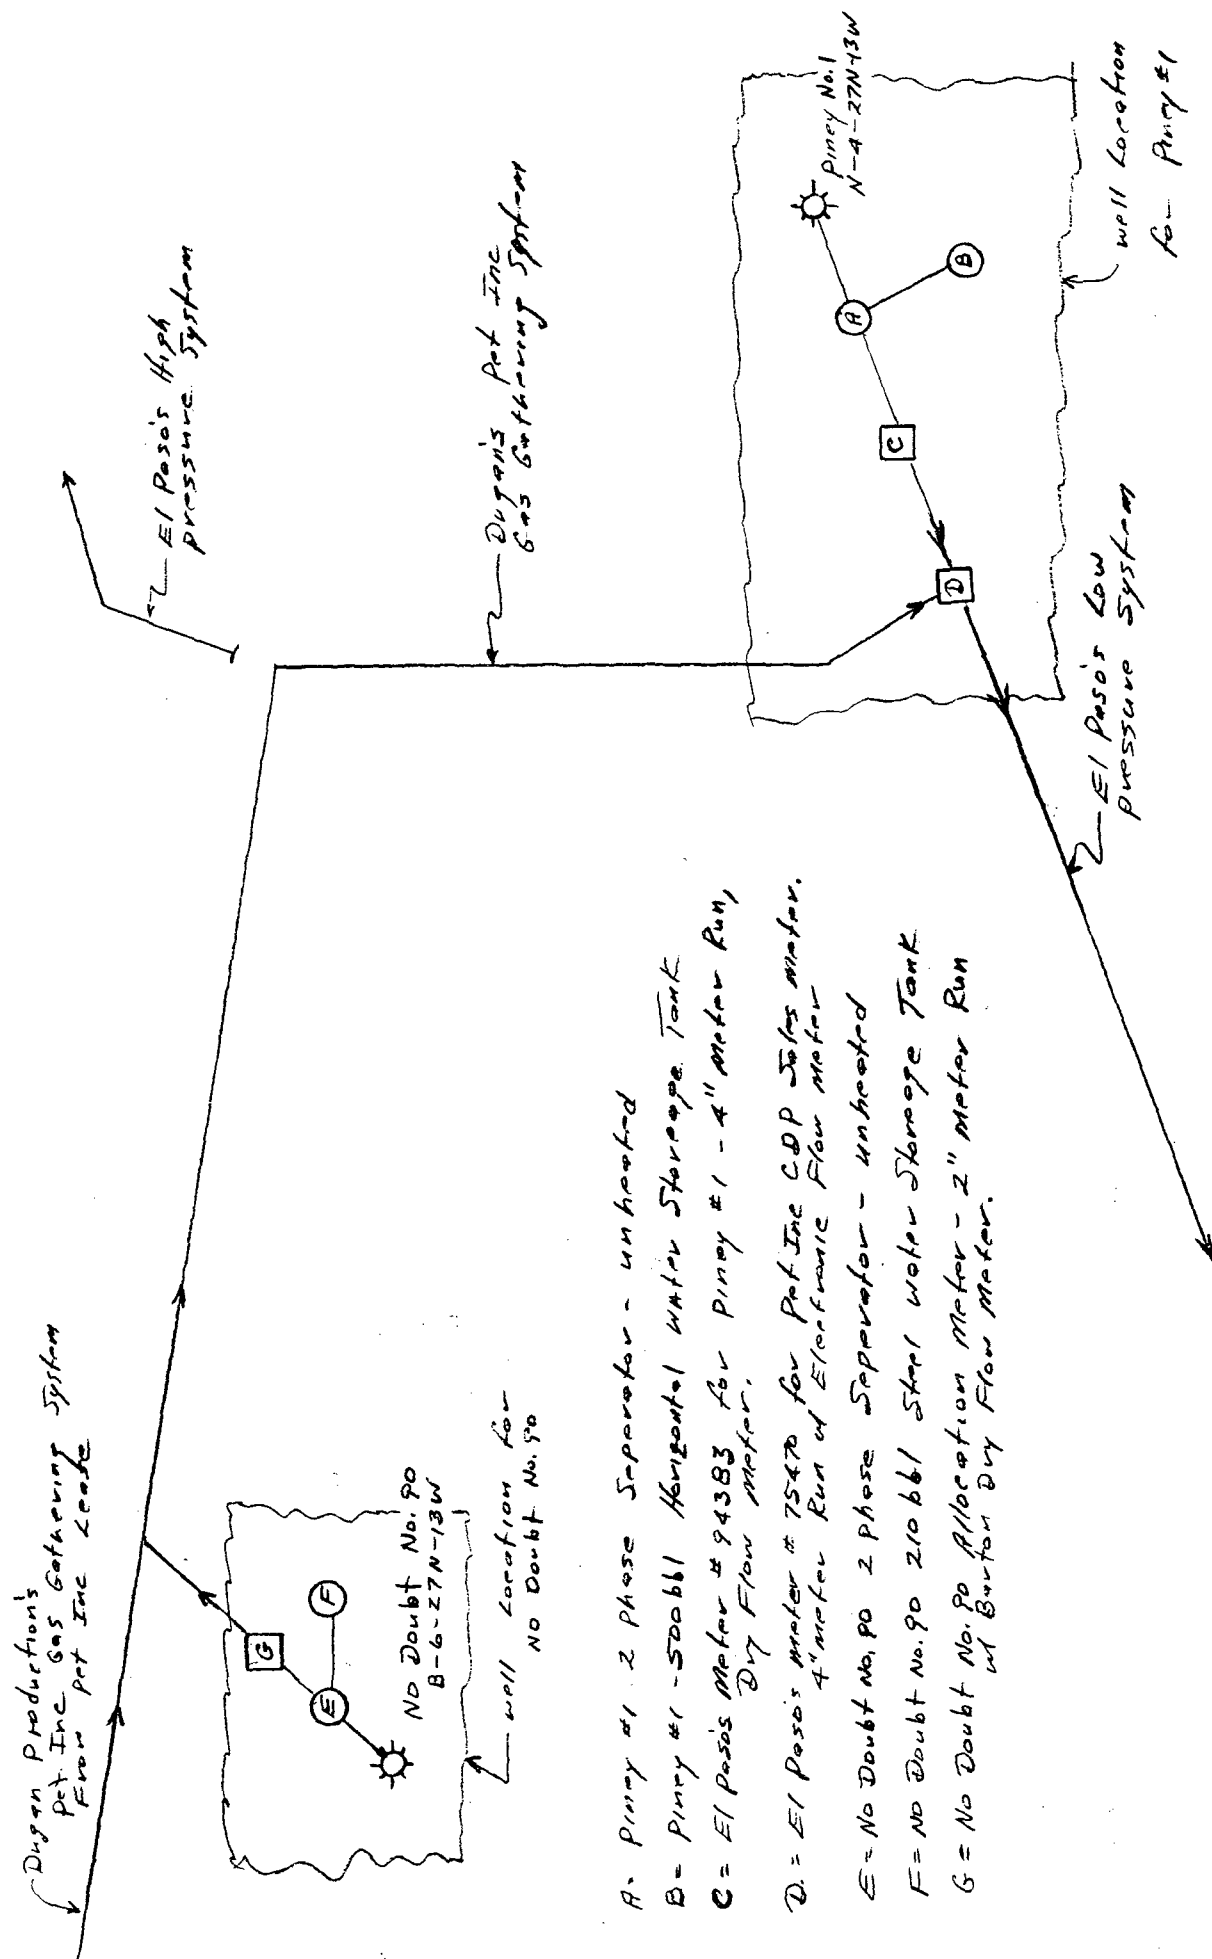 Dugan Production's
Pet. Inc Gas Gathering System
From Pet Inc Lease
El Paso's High
pressure System
Dugan's Pet Inc
Gas Gathering System
G
E
F
No Doubt No. 90
B-6-27N-13W
well Location for
No Doubt No. 90
Piney No. 1
N-4-27N-13W
A
B
C
D
well Location
for Piney #1
El Paso's Low
pressure System
A = Piney #1 2 Phase Separator - unheated
B = Piney #1 - 500 bbl Horizontal Water Storage Tank
C = El Paso's Meter # 94383 for Piney #1 - 4" Meter Run,
Dry Flow Meter.
D. = El Paso's Meter # 75470 for Pet Inc CDP Sales Meter.
4" Meter Run w/ Electronic Flow Meter
E = No Doubt No. 90 2 Phase Separator - unheated
F = No Doubt No. 90 210 bbl Steel Water Storage Tank
G = No Doubt No. 90 Allocation Meter - 2" Meter Run
w/ Barton Dry Flow Meter.